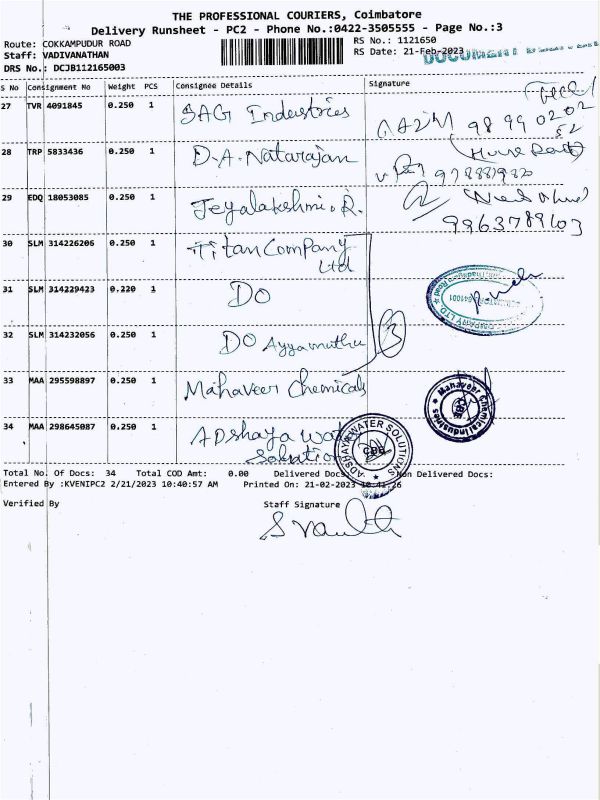 THE PROFESSIONAL COURIERS, Coimbatore
Delivery Runsheet - PC2 - Phone No.:0422-3505555 - Page No.:3
Route: COKKAMPUDUR ROAD RS No.: 1121650
Staff: VADIVANATHAN RS Date: 21-Feb-2023
DOCUMENT
DRS No.: DCJB112165003
S No Consignment No Weight PCS Consignee Details Signature
27 TVR 4091845 0.250 1 SAG Industries 98 99 0202 52
28 TRP 5833436 0.250 1 D.A. Natarajan
29 EDQ 18053085 0.250 1 Jeyalakshmi. R. 9963789603
30 SLM 314226206 0.250 1 Titan Company Ltd
31 SLM 314229423 0.220 1 DO 641001
32 SLM 314232056 0.250 1 DO Ayyamuthu 3
33 MAA 295598897 0.250 1 Mahaveer Chemicals Mahaveer Chemical Industries CBE
34 MAA 298645087 0.250 1 ADshaya Water Solution ADSHAYA WATER SOLUTIONS CBE
Total No. Of Docs: 34 Total COD Amt: 0.00 Delivered Docs: Non Delivered Docs:
Entered By :KVENIPC2 2/21/2023 10:40:57 AM Printed On: 21-02-2023 10:41:26
Verified By Staff Signature